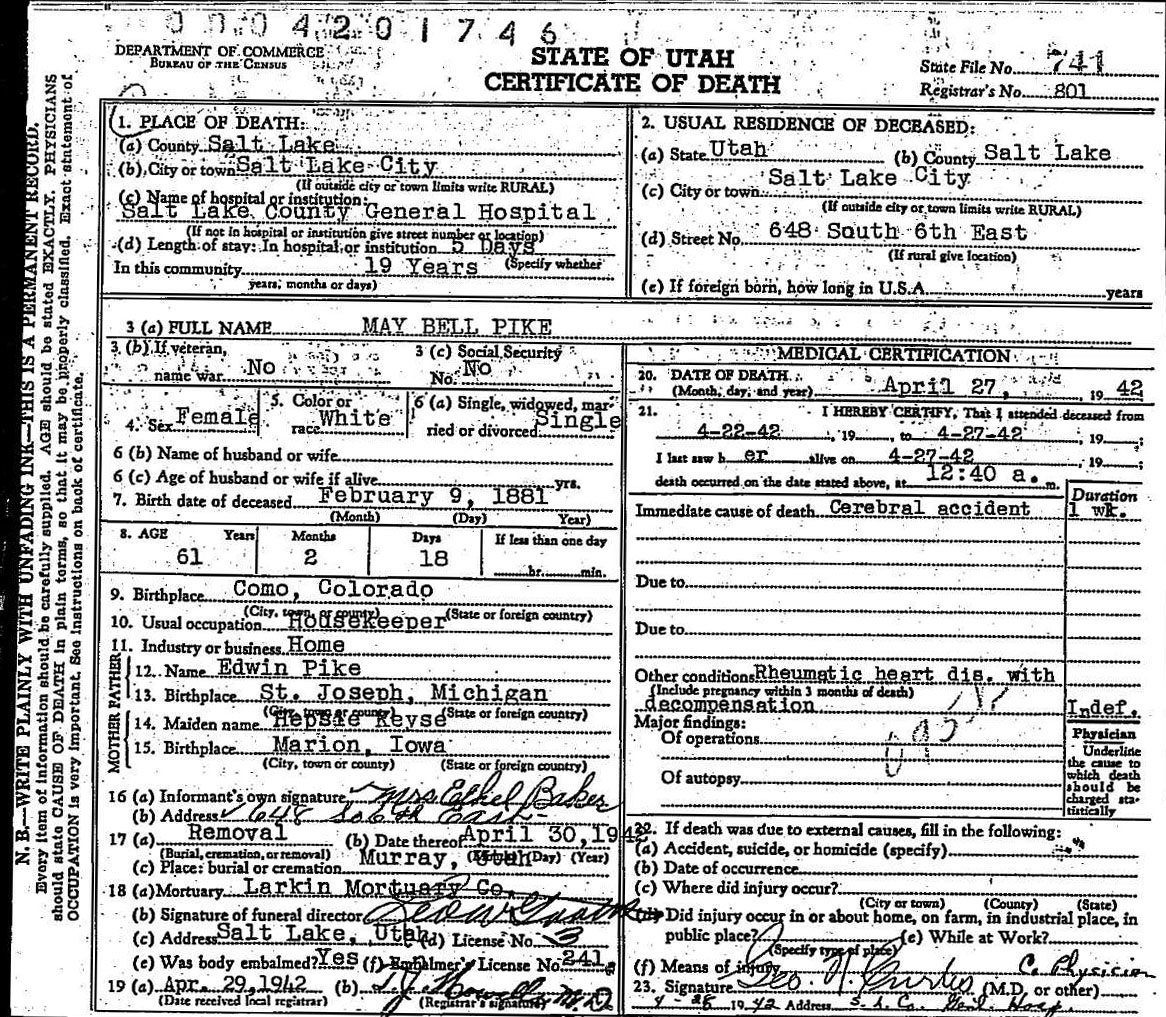 0 0 0 4 2 0 1 7 4 6
DEPARTMENT OF COMMERCE
BUREAU OF THE CENSUS
STATE OF UTAH
CERTIFICATE OF DEATH
State File No. 741
Registrar's No. 801
N. B.—WRITE PLAINLY WITH UNFADING INK—THIS IS A PERMANENT RECORD.
Every item of information should be carefully supplied. AGE should be stated EXACTLY. PHYSICIANS
should state CAUSE OF DEATH in plain terms, so that it may be properly classified. Exact statement of
OCCUPATION is very important. See instructions on back of certificate.
1. PLACE OF DEATH:
(a) County Salt Lake
(b) City or town Salt Lake City
(If outside city or town limits write RURAL)
(c) Name of hospital or institution:
Salt Lake County General Hospital
(If not in hospital or institution give street number or location)
(d) Length of stay: In hospital or institution 5 Days
In this community 19 Years (Specify whether
years, months or days)
2. USUAL RESIDENCE OF DECEASED:
(a) State Utah (b) County Salt Lake
(c) City or town Salt Lake City
(If outside city or town limits write RURAL)
(d) Street No. 648 South 6th East
(If rural give location)
(e) If foreign born, how long in U.S.A. years
3 (a) FULL NAME MAY BELL PIKE
3 (b) If veteran,
name war. No
3 (c) Social Security
No. No
4. Sex Female
5. Color or
race White
6 (a) Single, widowed, mar-
ried or divorced Single
6 (b) Name of husband or wife
6 (c) Age of husband or wife if alive yrs.
7. Birth date of deceased February 9, 1881
(Month) (Day) Year)
8. AGE Years Months Days If less than one day
61 2 18 hr. min.
9. Birthplace Como, Colorado
(City, town, or county) (State or foreign country)
10. Usual occupation Housekeeper
11. Industry or business Home
FATHER
12. Name Edwin Pike
13. Birthplace St. Joseph, Michigan
(City, town or county) (State or foreign country)
MOTHER
14. Maiden name Hepsie Keyse
15. Birthplace Marion, Iowa
(City, town or county) (State or foreign country)
16 (a) Informant's own signature Mrs Ethel Baker
(b) Address 648 So 6th East
17 (a) Removal (b) Date thereof April 30, 1942
(Burial, cremation, or removal) (Month) (Day) (Year)
(c) Place: burial or cremation Murray, Utah
18 (a) Mortuary Larkin Mortuary Co.
(b) Signature of funeral director
(c) Address Salt Lake, Utah (d) License No. 3
(e) Was body embalmed? Yes (f) Embalmer's License No. 241
19 (a) Apr. 29, 1942 (b) M.D
(Date received local registrar) (Registrar's signature)
MEDICAL CERTIFICATION
20. DATE OF DEATH
(Month, day, and year) April 27, 19 42
21. I HEREBY CERTIFY, That I attended deceased from
4-22-42, 19 , to 4-27-42, 19 ;
I last saw h er alive on 4-27-42, 19 ;
death occurred on the date stated above, at 12:40 a. m.
Duration
Immediate cause of death Cerebral accident 1 wk.
Due to
Due to
Other conditions Rheumatic heart dis. with
(Include pregnancy within 3 months of death)
decompensation Indef.
Major findings:
Of operations
Of autopsy
Physician
Underline
the cause to
which death
should be
charged sta-
tistically
22. If death was due to external causes, fill in the following:
(a) Accident, suicide, or homicide (specify)
(b) Date of occurrence
(c) Where did injury occur?
(City or town) (County) (State)
(d) Did injury occur in or about home, on farm, in industrial place, in
public place? (e) While at Work?
(Specify type of place)
(f) Means of injury
23. Signature Geo. N. Curtis C. Physician (M.D. or other)
4-28 1942 Address S. L. Co. Genl. Hosp.